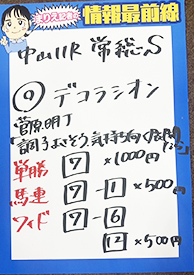 まりえ記者の 情報最前線
中山11R 常総S
⑨ デコラシオン
菅原明了
「調子よさそう。気持ち向く展開なら」
単勝 7 ×1000円
馬連 7-1 ×500円
ワイド 7-6
12 ×500円